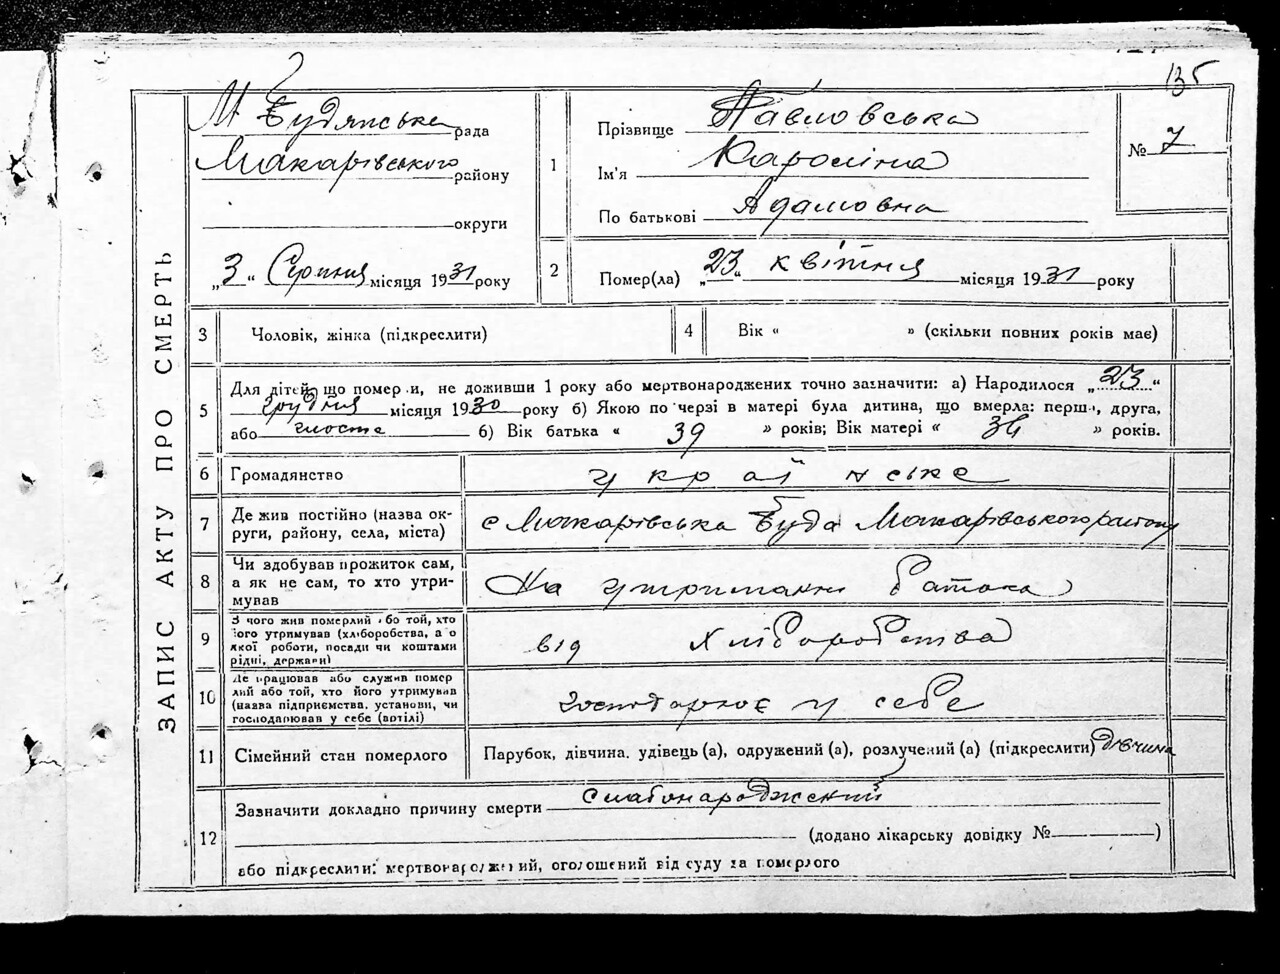 135
М Будянська рада
Макарівського району
округи
„3“ Серпня місяця 1931 року
ЗАПИС АКТУ ПРО СМЕРТЬ
1
Прізвище Павловська
Ім'я Кароліна
По батькові Адамовна
№ 7
2 Помер(ла) „23“ квітня місяця 1931 року
3 Чоловік, жінка (підкреслити)
4 Вік « » (скільки повних років має)
5 Для дітей що померли, не доживши 1 року або мертвонароджених точно зазначити: а) Народилося „23“
грудня місяця 1930 року б) Якою по черзі в матері була дитина, що вмерла: перша, друга,
або шоста б) Вік батька « 39 » років; Вік матері « » років.
6 Громадянство українське
7 Де жив постійно (назва ок-
руги, району, села, міста)
с Макарівська Буда Макарівського району
8 Чи здобував прожиток сам,
а як не сам, то хто утри-
мував
На утриманні батька
9 З чого жив померлий або той, хто
його утримував (хліборобства, а о
якої роботи, посади чи коштами
рідні, держави)
від Хліборобства
10 Де працював або служив помер
лий або той, хто його утримував
(назва підприємства, установи, чи
господарював у себе (артілі)
господарює у себе
11 Сімейний стан померлого Парубок, дівчина, удівець (а), одружений (а), розлучений (а) (підкреслити) дівчина
12 Зазначити докладно причину смерти слабонароджений
(додано лікарську довідку № )
або підкреслити: мертвонароджений, оголошений від суду за померлого